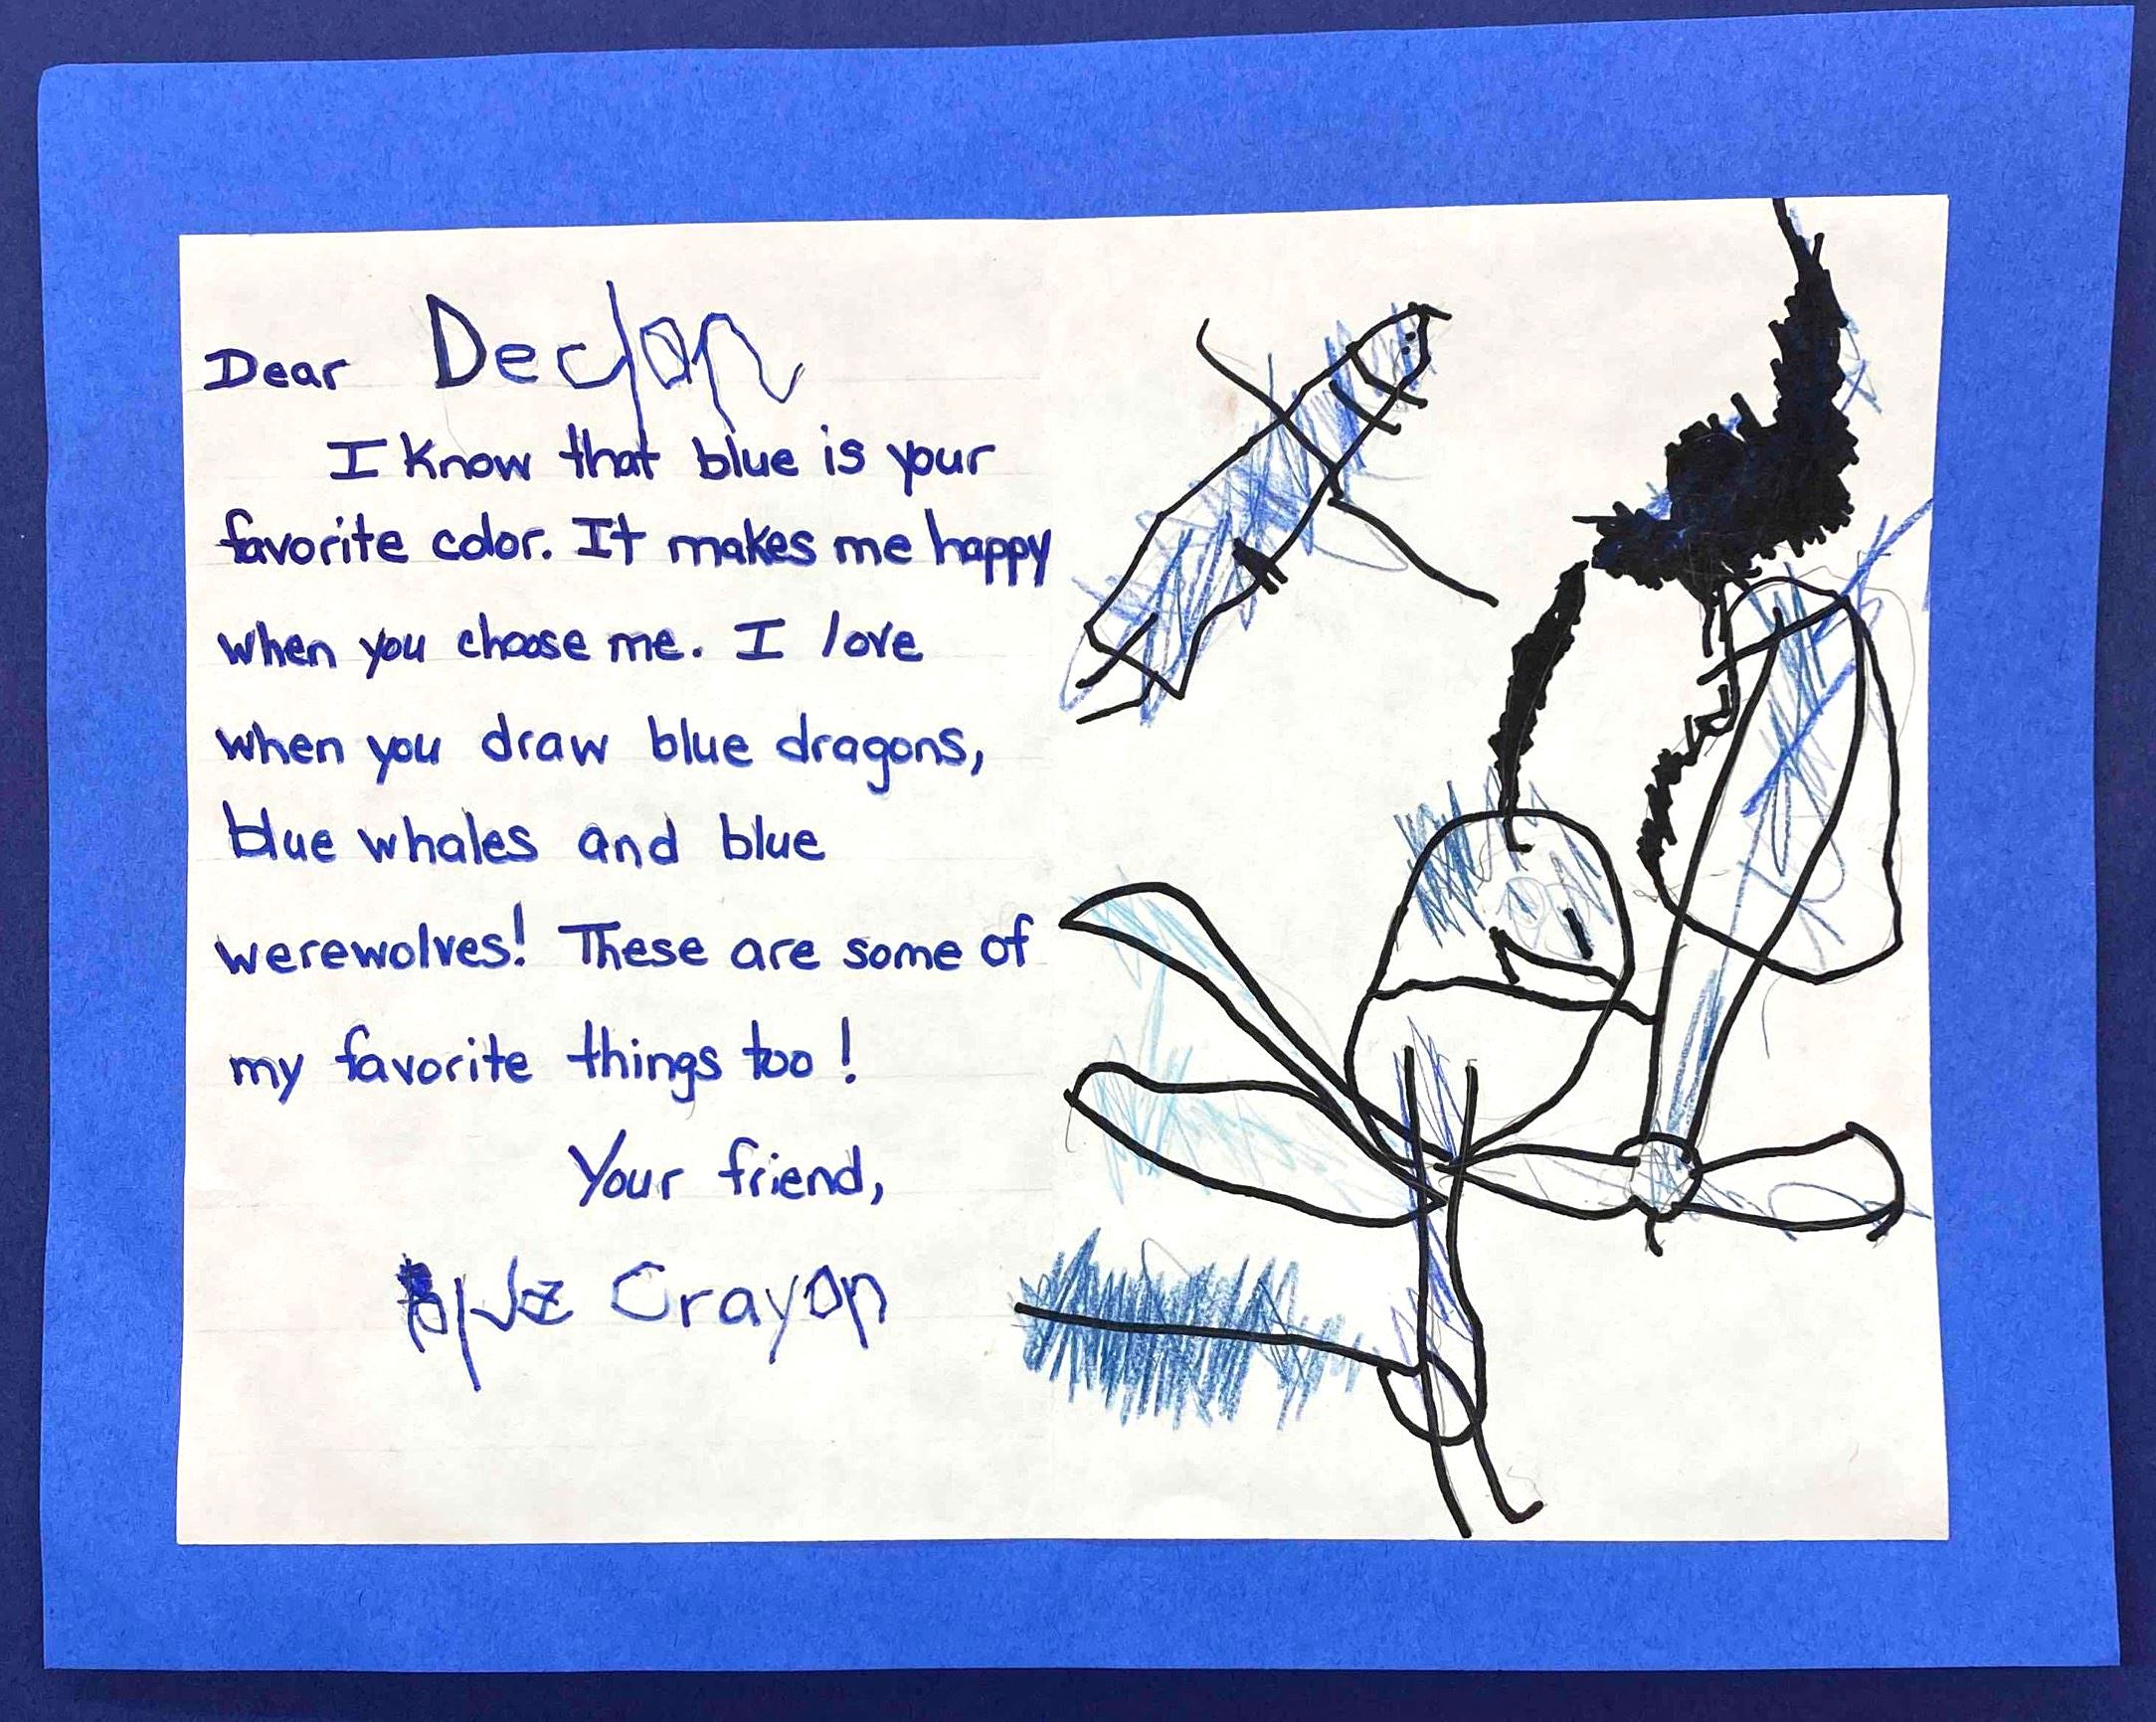 Dear Declan
I know that blue is your
favorite color. It makes me happy
when you choose me. I love
when you draw blue dragons,
blue whales and blue
werewolves! These are some of
my favorite things too!
Your friend,
Blue Crayon